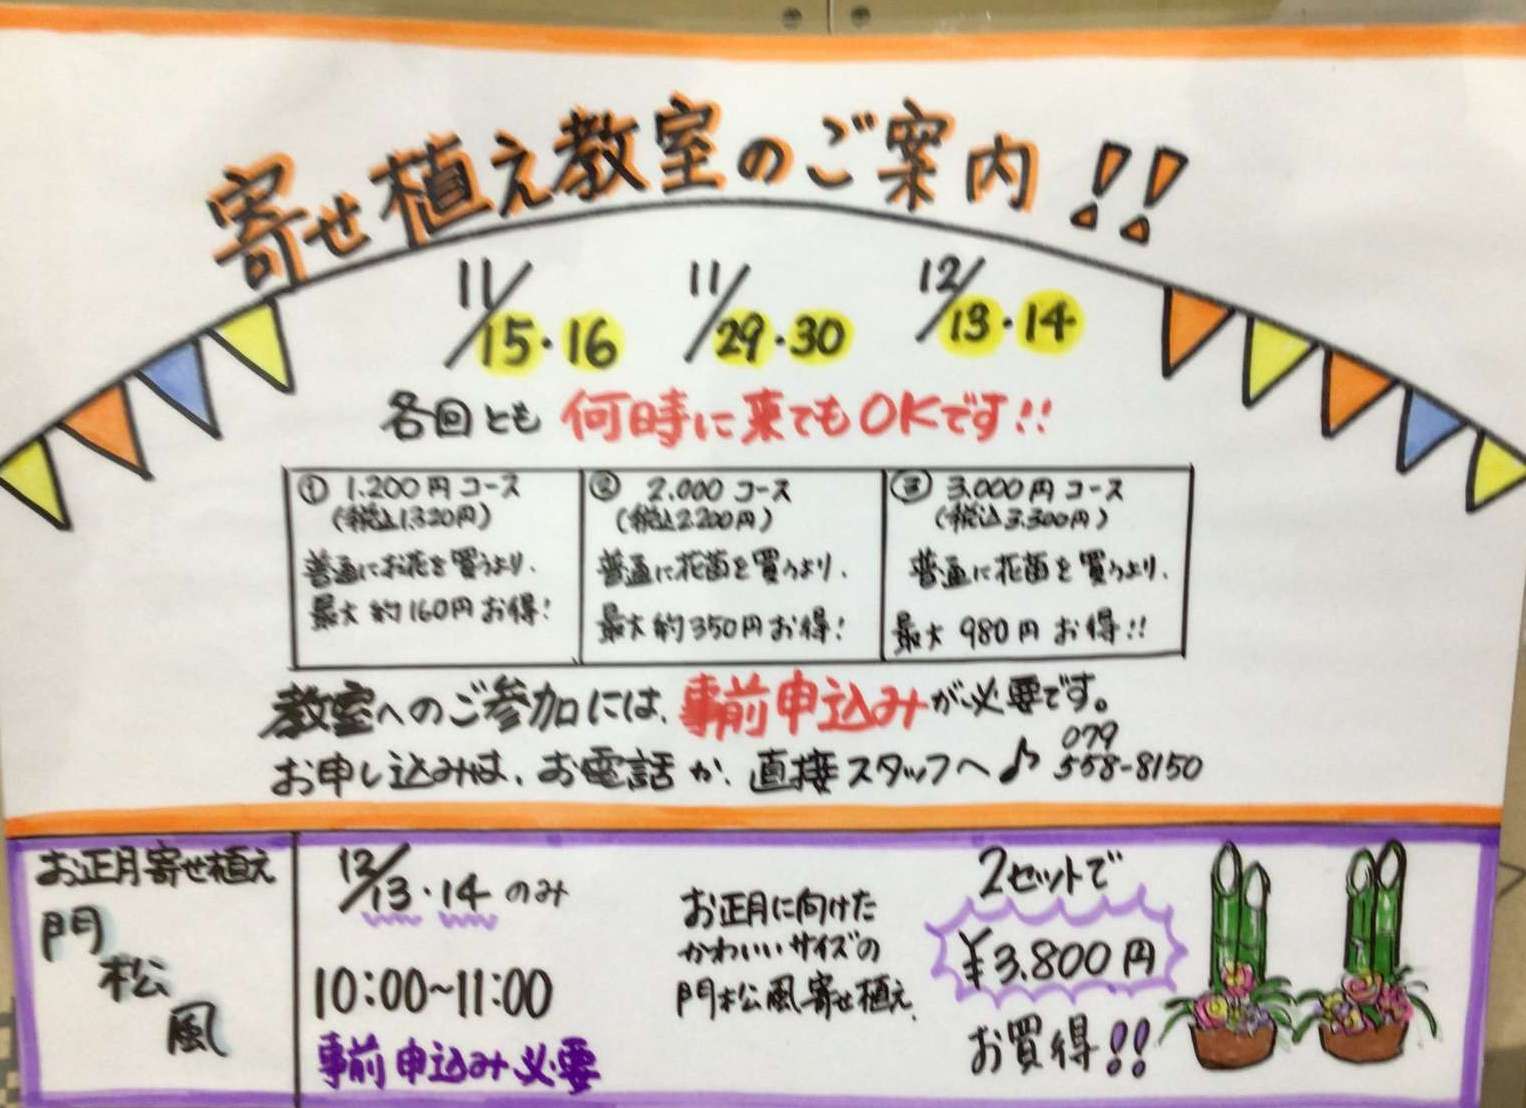 寄せ植え教室のご案内!!
11/15・16 11/29・30 12/13・14
各回とも 何時に来てもOKです!!
① 1.200円コース
(税込1.320円)
普通にお花を買うより、
最大 約160円お得!
② 2.000コース
(税込2.200円)
普通に花苗を買うより、
最大約350円お得!
③ 3.000円コース
(税込3.300円)
普通に花苗を買うより、
最大 980円 お得!!
教室へのご参加には、事前申込みが必要です。
お申し込みは、お電話か、直接スタッフへ♪ 079
558-8150
お正月寄せ植え
門松風
12/13・14 のみ
10:00~11:00
事前申込み必要
お正月に向けた
かわいいサイズの
門松風寄せ植え
2セットで
¥3.800円
お買得!!